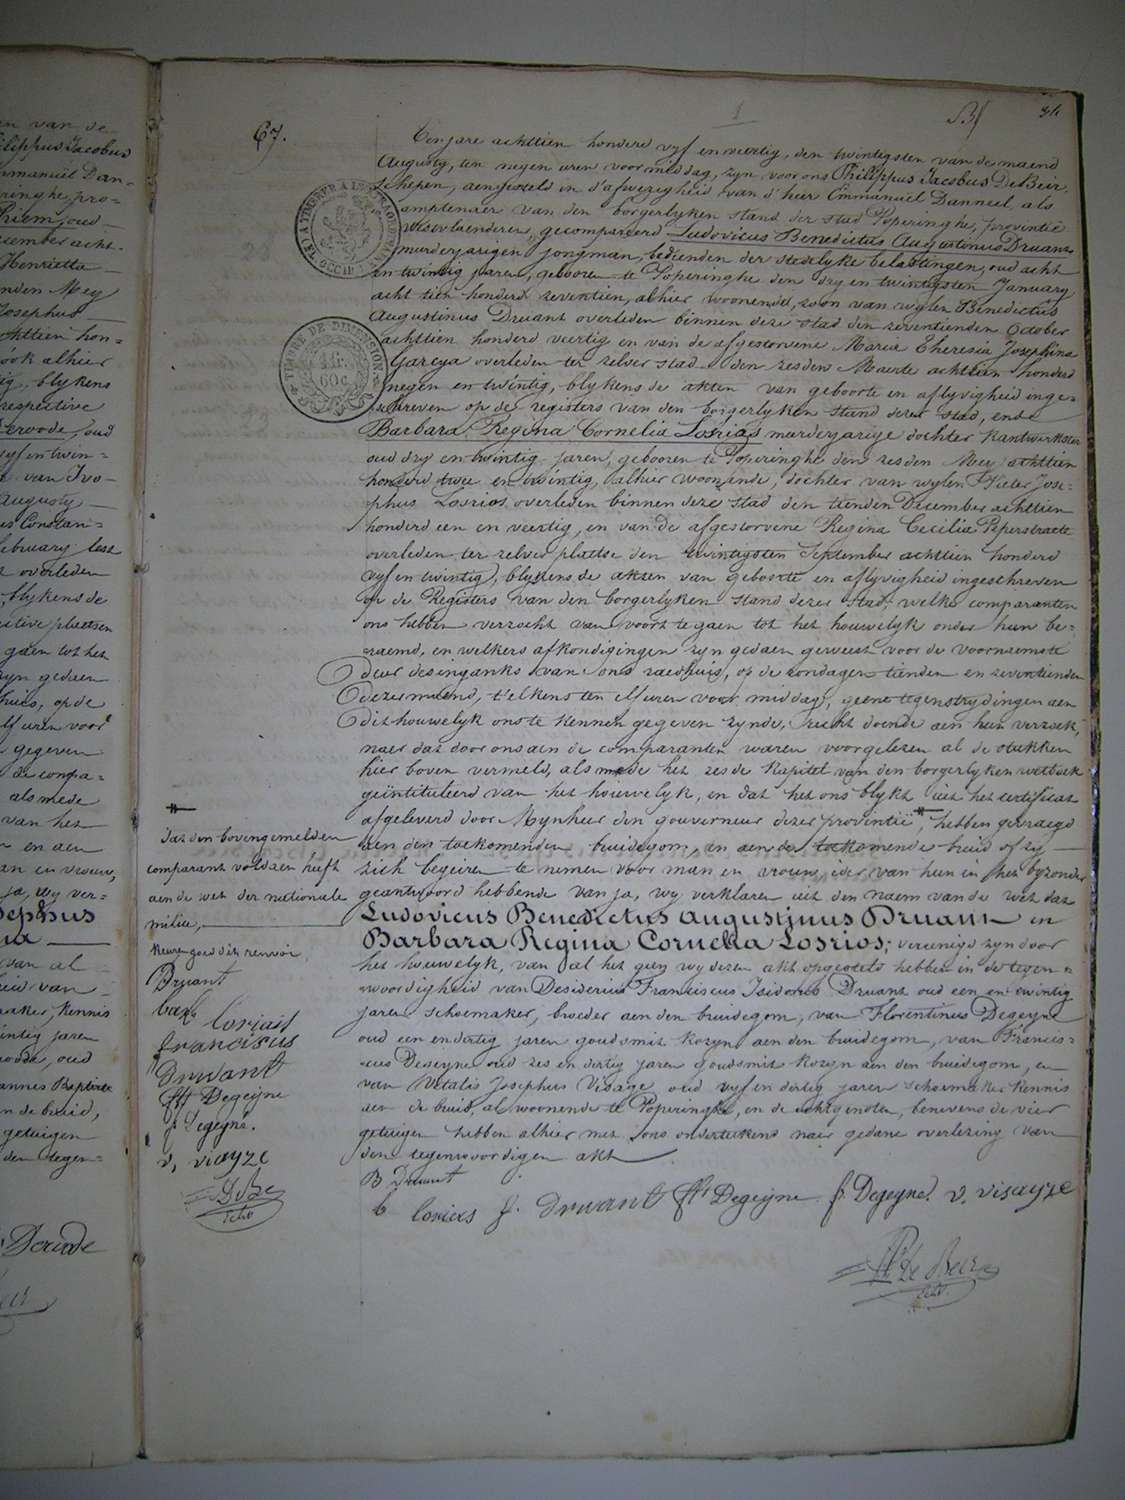 en van de
ilippus Jacobus
mmanuël Dan-
ringhe, pro-
hiem, oud
cember acht-
Henrietta
nden Mey
Josephus
achttien hon-
ook alhier
tig, blykens
respective
Deroode, oud
vyf en twin-
van Ivo-
augusty
us Constan-
february lest
overleden
blykens de
itive plaetsen
gaen tot het
zyn gedaen
huis, op de
elf uren voor
gegeven
de compa-
als mede
van het
en aen
an en vrouw,
ja, wy ver-
Josephus
van al
heid van
maker, kennis
intig jaren
roode, oud
annes Baptiste
n de bruid,
getuigen
den tegen-
Deroode
67.
B/
34
Ten jare achttien honderd vyf en veertig, den twintigsten van de maend
Augusty, ten negen uren voormiddag, zyn voor ons Philippus Jacobus De Beir
schepen, aengesteld in d'afwezigheid van d'heer Emmanuël Danneel, als
amptenaer van den borgerlyken stand der stad Poperinghe, provintie
Westvlaenderen, gecompareerd Ludovicus Benedictus Augustinus Druant
meerderjarigen jongman, bedienden der stedelyke belastingen, oud acht
en twintig jaren, geboren te Poperinghe den dry en twintigsten January
acht tien honderd zeventien, alhier woonende, zoon van wylen Benedictus
Augustinus Druant overleden binnen deze stad den zeventienden October
achttien honderd veertig en van de afgestorvene Maria Theresia Josephina
Gareya overleden ter zelver stad den zesden Maerte achttien honderd
negen en twintig, blykens de akten van geboorte en aflyvigheid inge-
schreven op de registers van den borgerlyken stand dezer stad, ende
Barbara Regina Cornelia Losrias meerderjarige dochter kantwerkster
oud dry en twintig jaren, geboren te Poperinghe den zesden Mey achttien
honderd twee en twintig, alhier woonende, dochter van wylen Pieter Jose-
phus Losrios overleden binnen deze stad den tienden December achttien
honderd een en veertig, en van de afgestorvene Regina Cecilia Peperstraete
overleden ter zelver plaetse den twintigsten September achttien honderd
vyf en twintig, blykens de akten van geboorte en aflyvigheid ingeschreven
op de Registers van den borgerlyken stand dezer stad, welke comparanten
ons hebben verzocht van voort te gaen tot het houwelyk onder hun be-
raemd, en welkers afkondigingen zyn gedaen geweest voor de voornaemste
deur des inganks van ons raedhuis, op de zondagen tienden en zeventienden
dezer maend, t'elkens ten elf uren voor middag, geene tegenstrydingen aen
dit houwelyk ons te kennen gegeven zynde, recht doende aen hun verzoek,
naer dat door ons aen de comparanten waren voorgelezen al de stukken
hier boven vermeld, als mede het zesde kapitel van den borgerlyken wetboek
geïntituleerd van het houwelyk, en dat het ons blykt uit het certificat
afgeleverd door Mynheer den gouverneur dezer provintie, hebben gevraegd
aen den toekomenden bruidegom, en aen de toekomende bruid of zy
zich begeeren te nemen voor man en vrouw, ider van hun in het byzonder
geantwoord hebbende van ja, wy verklaren uit den naem van de wet dat
Ludovicus Benedictus Augustinus Druant en
Barbara Regina Cornelia Losrios; vereenigd zyn door
het houwelyk, van al het geen wy dezen akt opgesteld hebben in de tegen-
woordigheid van Desiderius Franciscus Isidorus Druant oud een en twintig
jaren schoemaker, broeder aen den bruidegom, van Florentinus Degeyne
oud een en dertig jaren goudsmit kozyn aen den bruidegom, van Francis-
cus Degeyne oud zes en dertig jaren goudsmit kozyn aen den bruidegom, en
van Vitalis Josephus Visage oud vyf en dertig jaren schoemaker kennis
aen de bruid, al woonende te Poperinghe, en de echtgenoten, benevens de vier
getuigen hebben alhier met ons onderteekend naer gedane overlezing van
den tegenwoordigen akt
B Druant
b loriers f. druant ff Degeyne f. Degeyne. v. visayze
Ph De Beir
Sch.
dat den bovengemelden
comparant voldaen heeft
aen de wet der nationale
milicie,
Keure goed dit renvoi
Druant
bar loriast
francisus
druant
ff Degeyne
f Degeyne.
v, viayze
DeBe
Sch
TIMBRE DE DIMENSION
45.
60c